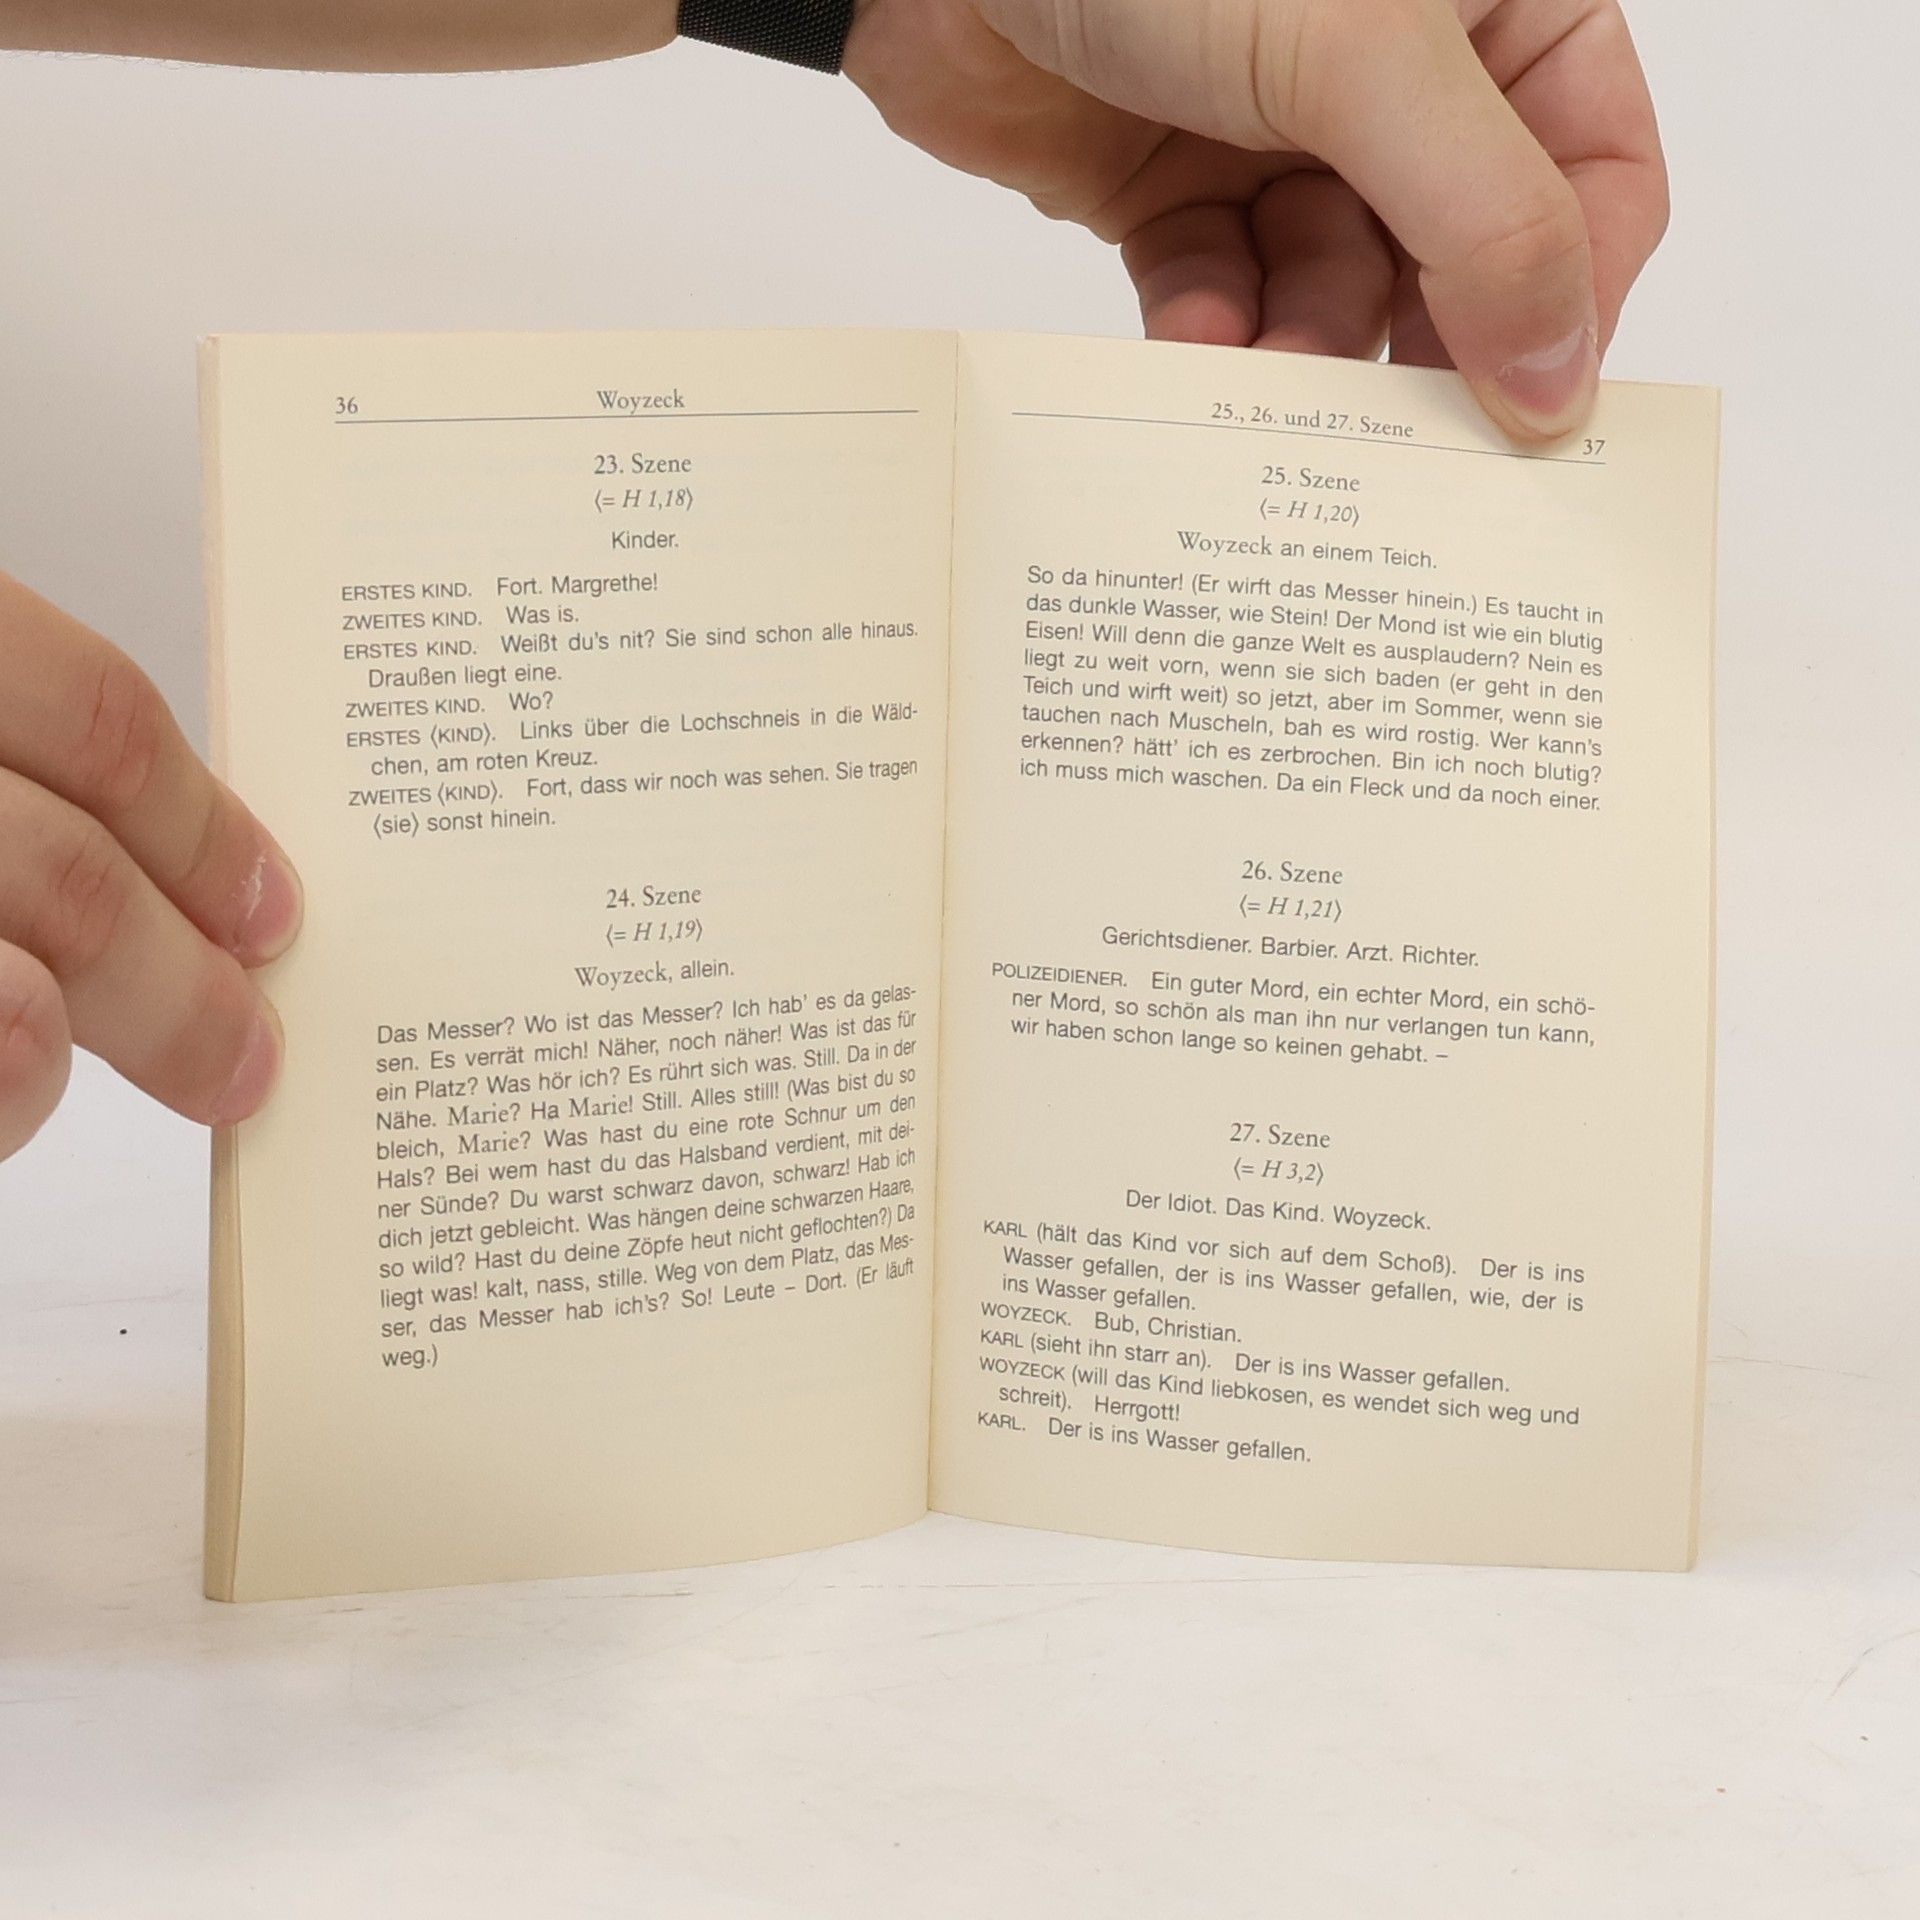 36
Woyzeck
23. Szene
⟨= H 1,18⟩
Kinder.
ERSTES KIND. Fort. Margrethe!
ZWEITES KIND. Was is.
ERSTES KIND. Weißt du's nit? Sie sind schon alle hinaus.
Draußen liegt eine.
ZWEITES KIND. Wo?
ERSTES ⟨KIND⟩. Links über die Lochschneis in die Wäld-
chen, am roten Kreuz.
ZWEITES ⟨KIND⟩. Fort, dass wir noch was sehen. Sie tragen
⟨sie⟩ sonst hinein.
24. Szene
⟨= H 1,19⟩
Woyzeck, allein.
Das Messer? Wo ist das Messer? Ich hab' es da gelas-
sen. Es verrät mich! Näher, noch näher! Was ist das für
ein Platz? Was hör ich? Es rührt sich was. Still. Da in der
Nähe. Marie? Ha Marie! Still. Alles still! (Was bist du so
bleich, Marie? Was hast du eine rote Schnur um den
Hals? Bei wem hast du das Halsband verdient, mit dei-
ner Sünde? Du warst schwarz davon, schwarz! Hab ich
dich jetzt gebleicht. Was hängen deine schwarzen Haare,
so wild? Hast du deine Zöpfe heut nicht geflochten?) Da
liegt was! kalt, nass, stille. Weg von dem Platz, das Mes-
ser, das Messer hab ich's? So! Leute – Dort. (Er läuft
weg.)
25., 26. und 27. Szene
37
25. Szene
⟨= H 1,20⟩
Woyzeck an einem Teich.
So da hinunter! (Er wirft das Messer hinein.) Es taucht in
das dunkle Wasser, wie Stein! Der Mond ist wie ein blutig
Eisen! Will denn die ganze Welt es ausplaudern? Nein es
liegt zu weit vorn, wenn sie sich baden (er geht in den
Teich und wirft weit) so jetzt, aber im Sommer, wenn sie
tauchen nach Muscheln, bah es wird rostig. Wer kann's
erkennen? hätt' ich es zerbrochen. Bin ich noch blutig?
ich muss mich waschen. Da ein Fleck und da noch einer.
26. Szene
⟨= H 1,21⟩
Gerichtsdiener. Barbier. Arzt. Richter.
POLIZEIDIENER. Ein guter Mord, ein echter Mord, ein schö-
ner Mord, so schön als man ihn nur verlangen tun kann,
wir haben schon lange so keinen gehabt. –
27. Szene
⟨= H 3,2⟩
Der Idiot. Das Kind. Woyzeck.
KARL (hält das Kind vor sich auf dem Schoß). Der is ins
Wasser gefallen, der is ins Wasser gefallen, wie, der is
ins Wasser gefallen.
WOYZECK. Bub, Christian.
KARL (sieht ihn starr an). Der is ins Wasser gefallen.
WOYZECK (will das Kind liebkosen, es wendet sich weg und
schreit). Herrgott!
KARL. Der is ins Wasser gefallen.